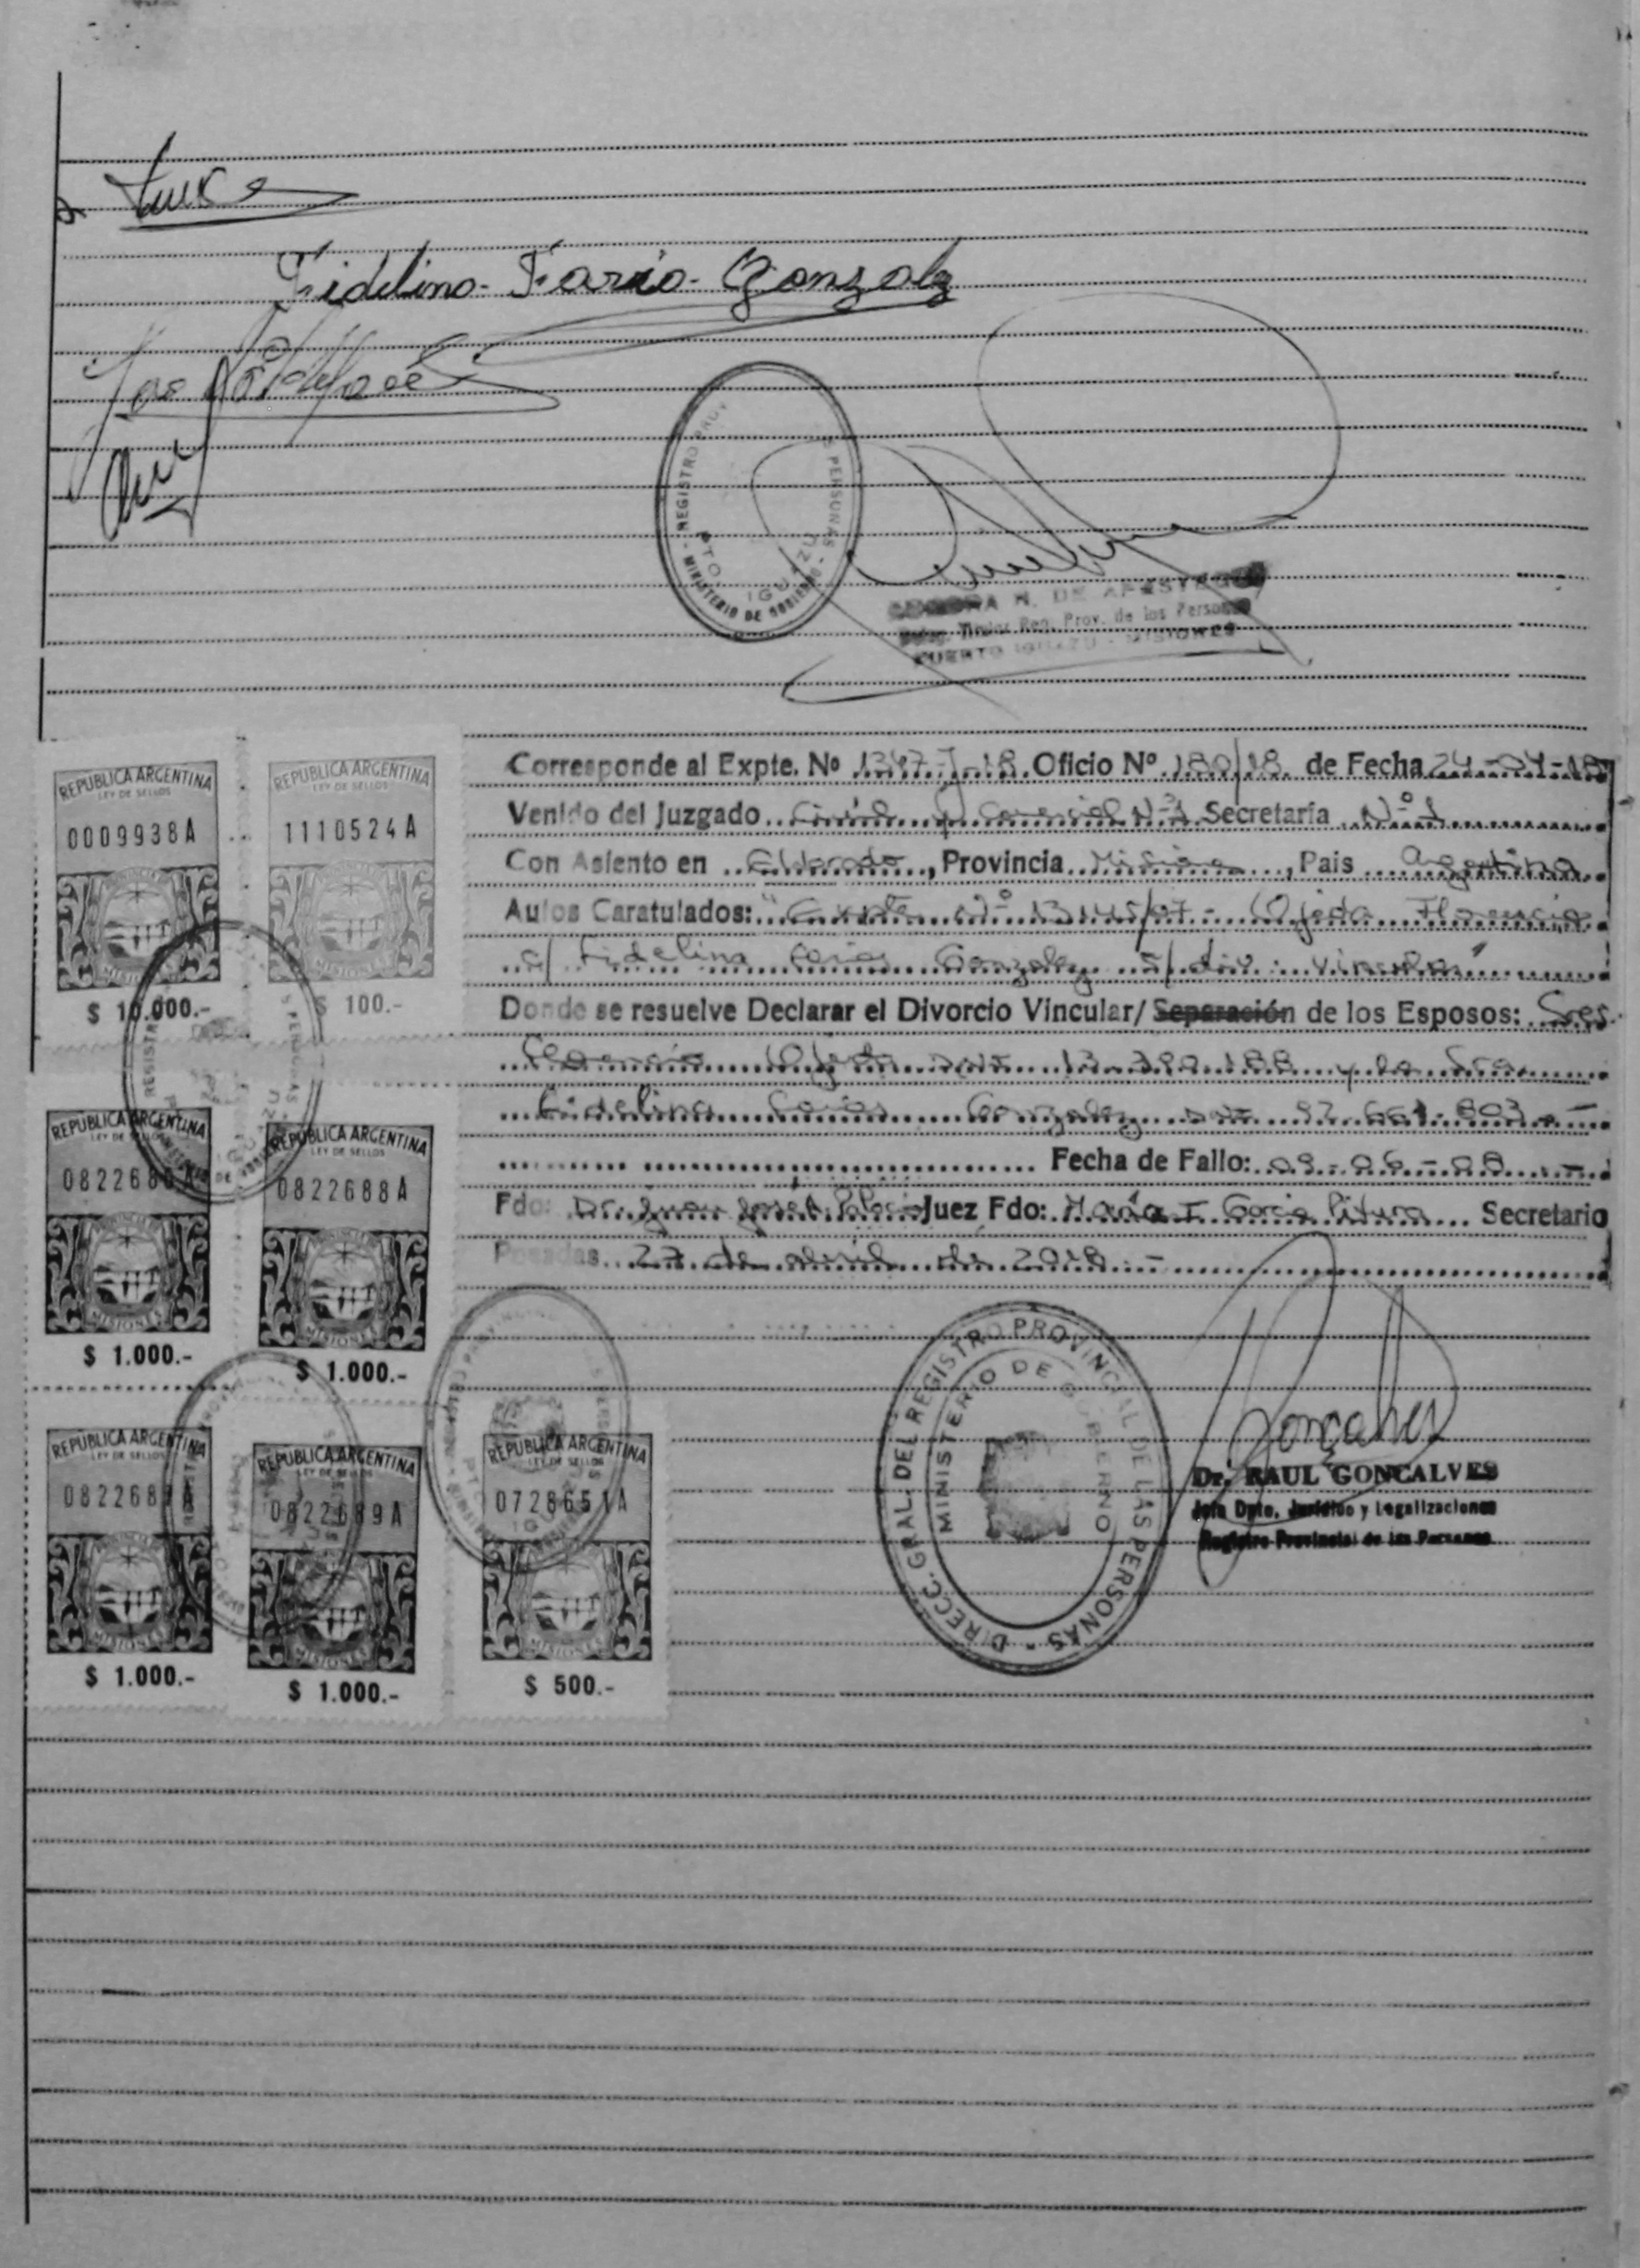 Fidelina- Farias- Gonzalez
REGISTRO PROV PERSONAS
PTO. IGUAZU
MINISTERIO DE GOBIERNO
N. DE
Reg. Prov. de las Personas
PUERTO IGUAZU - MISIONES
Corresponde al Expte. Nº 1347-J-18 Oficio Nº 180/18 de Fecha 24-04-18
Venido del Juzgado Civil y Comercial Nº1 Secretaría Nº 1
Con Asiento en Eldorado, Provincia Misiones, Pais Argentina
Autos Caratulados: "Expte Nº /07- Ojeda Florencio
c/ Fidelina Farias Gonzalez s/ div. vincular"
Donde se resuelve Declarar el Divorcio Vincular/ Separación de los Esposos: Sres.
Florencio Ojeda DNI 13.390.188 y la Sra.
Fidelina Farias Gonzalez DNI 92.661.803.-
Fecha de Fallo: 09-06-08.-
Fdo: Dr. Juan José A. Palacio Juez Fdo: María I Garcia Secretario
Posadas 27 de abril de 2018.-
REPUBLICA ARGENTINA
LEY DE SELLOS
0009938A
MISIONES
$ 10.000.-
REPUBLICA ARGENTINA
LEY DE SELLOS
1110524A
MISIONES
$ 100.-
REPUBLICA ARGENTINA
LEY DE SELLOS
082268 A
MISIONES
$ 1.000.-
REPUBLICA ARGENTINA
LEY DE SELLOS
0822688A
MISIONES
$ 1.000.-
REPUBLICA ARGENTINA
LEY DE SELLOS
0822687A
MISIONES
$ 1.000.-
REPUBLICA ARGENTINA
LEY DE SELLOS
0822689A
MISIONES
$ 1.000.-
REPUBLICA ARGENTINA
LEY DE SELLOS
0728651A
MISIONES
$ 500.-
DIRECC. GRAL. DEL REGISTRO PROVINCIAL DE LAS PERSONAS
MINISTERIO DE GOBIERNO
Dr. RAUL GONCALVES
Jefe Dpto. Jurídico y Legalizaciones
Registro Provincial de las Personas